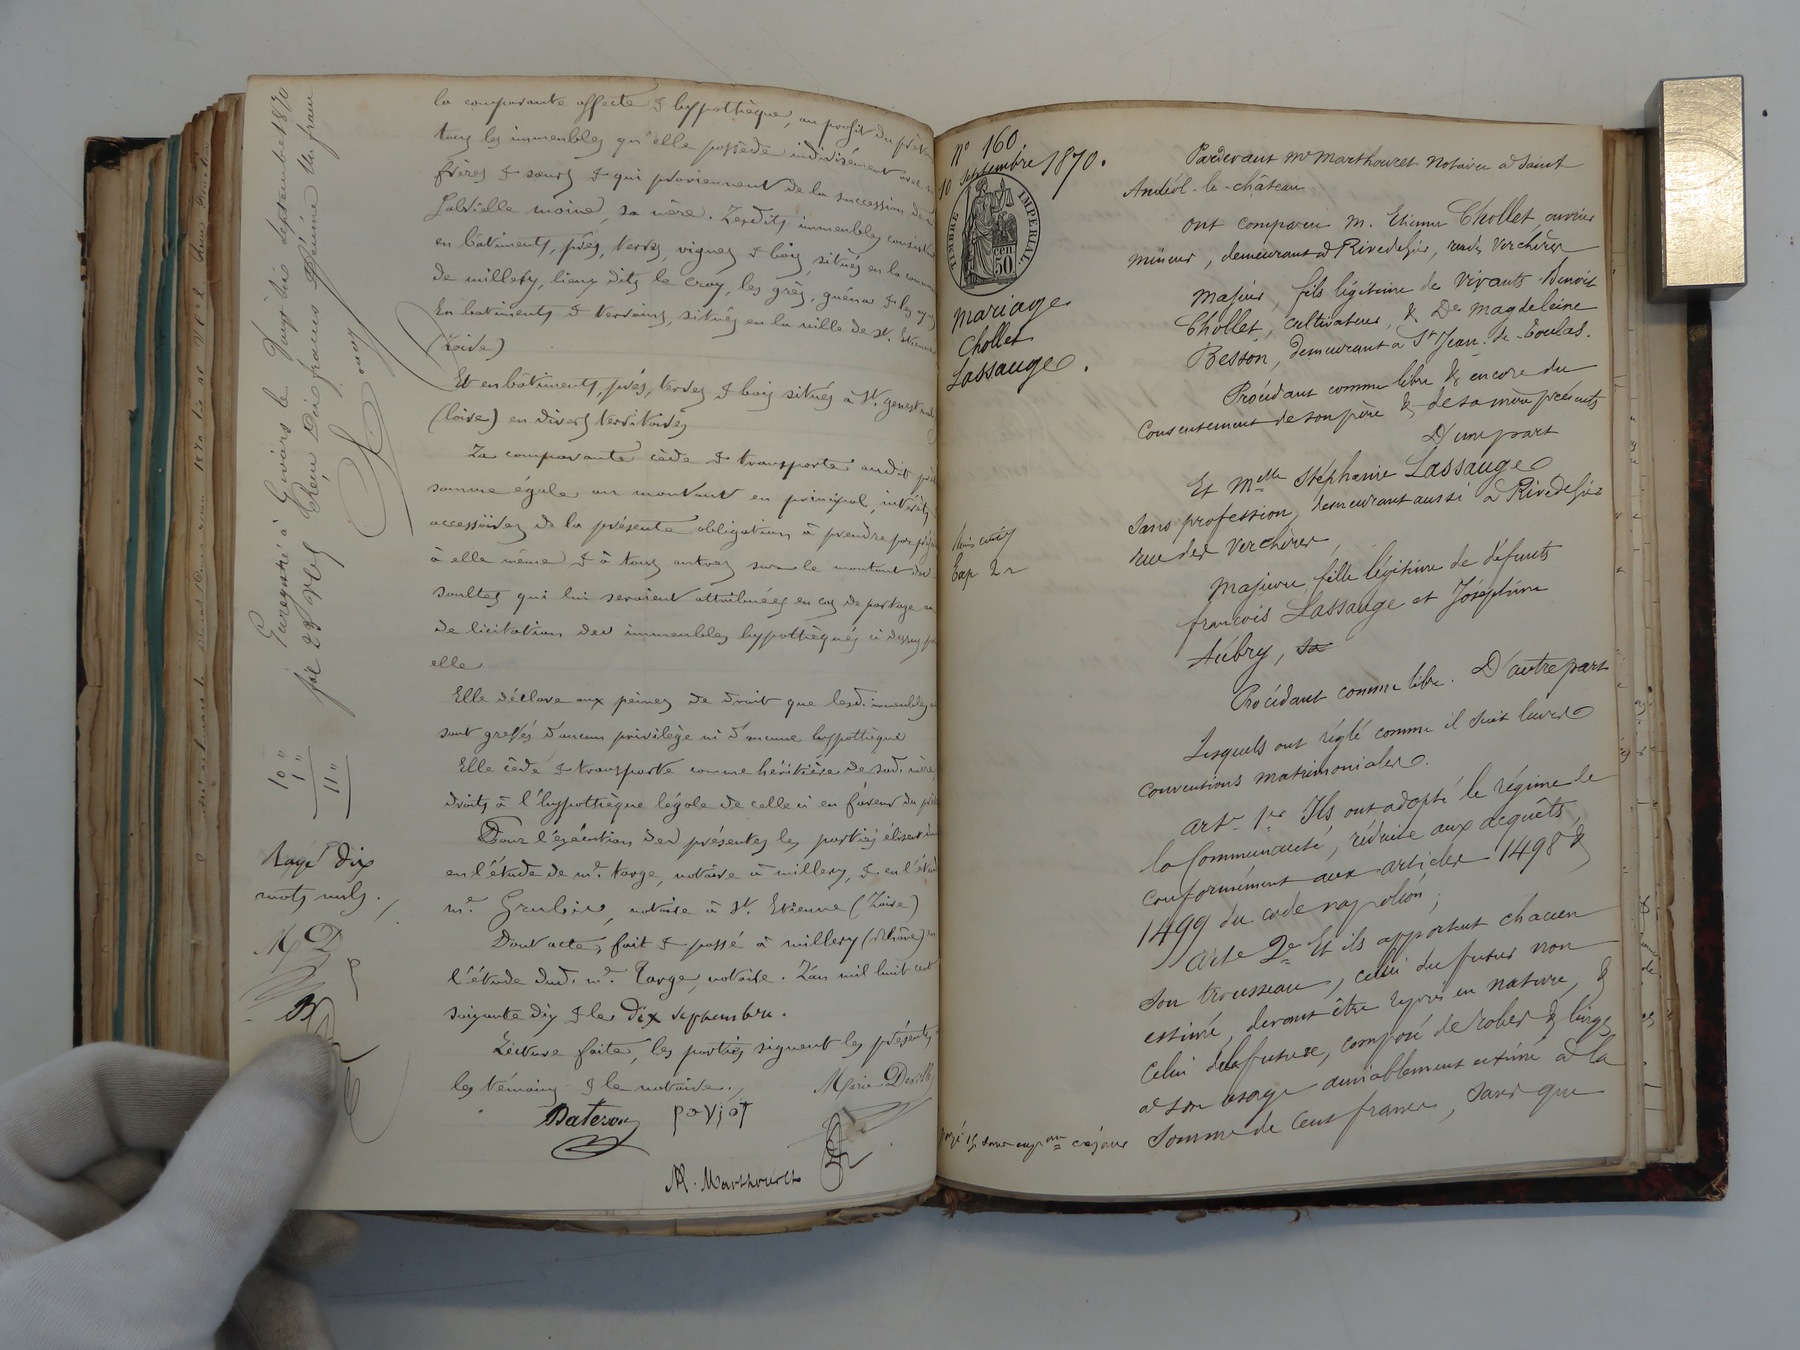 la comparante affecte & hypothèque, au profit du
tous les immeubles qu'elle possède indivisément avec
frères & sœurs & qui proviennent de la succession de
Gabrielle moine, sa mère. Lesdits immeubles
en bâtiments, prés, terres, vignes & bois, situés en la
de millery, lieux dits le Cray, les grès, & les
En batiments & terrains, situés en la ville de St. Etienne
(Loire)
Et en bâtiments, prés, terres & bois situés à St. genest
(loire) en divers territoires
La comparante cède & transporte audit
somme égale au montant en principal, intérêts
accessoires de la présente obligation à prendre par
à elle même & à tous autres sur le montant des
soultes qui lui seraient attribuées en cas de partage ou
de licitation des immeubles hypothéqués ci dessus
elle
Elle déclare aux peines de droit que lesd. immeubles
sont grevés d'aucun privilège ni d'aucune hypothèque
Elle cède & transporte comme héritière de sad. mère
droits à l'hypothèque légale de celle ci en faveur du
Pour l'exécution des présentes les parties élisent
en l'étude de me. targe, notaire à millery, & en l'étude
me. notaire à St. Etienne (Loire)
Dont acte, fait & passé à millery (rhône) en
l'étude dud. me. Targe, notaire. L'an mil huit cent
soixante dix & le Dix septembre.
Lecture faite, les parties signent les présentes
les témoins & le notaire.
Marie
Dateron poyjot
M. Marthouret
Enregistré à Givors le Vingt six septembre 1870
fol 28 Reçu Dix francs Décime Un franc
10 "
1 "
11 "
Rayé dix
mots nuls.
M D
N° 160
10 septembre 1870.
TIMBRE IMPERIAL
50 CEN
mariage
Chollet
Lassauge.
Exp 2r
Pardevant me Marthouret Notaire à Saint
Andéol-le-château
ont comparu M. Etienne Chollet, ouvrier
mineur, demeurant à Rivedegier, rue des Verchères
majeur, fils légitime de Vivants Benoit
Chollet, cultivateur, & De Magdeleine
Besson, demeurant à St Jean-de-Toulas.
Procédant comme libre & encore du
consentement de son père & de sa mère présents
D'une part
Et Melle Stéphanie Lassauge
sans profession, demeurant aussi à Rivedegier
rue des Verchères
Majeure fille légitime de défunts
françois Lassauge et Joséphine
Aubry, sa
Procédant comme libre. D'autre part
Lesquels ont réglé comme il suit leurs
conventions matrimoniales.
Art. 1er Ils ont adopté le régime de
la Communauté, réduite aux acquêts,
conformément aux articles 1498 &
1499 du code napoléon;
Arte 2e Et ils apportent chacun
son trousseau, celui du futur non
estimé, devant être repris en nature, &
celui de la future, composé de robes & linges
à son usage amiablement estimé à la
somme de Cent francs, sans que